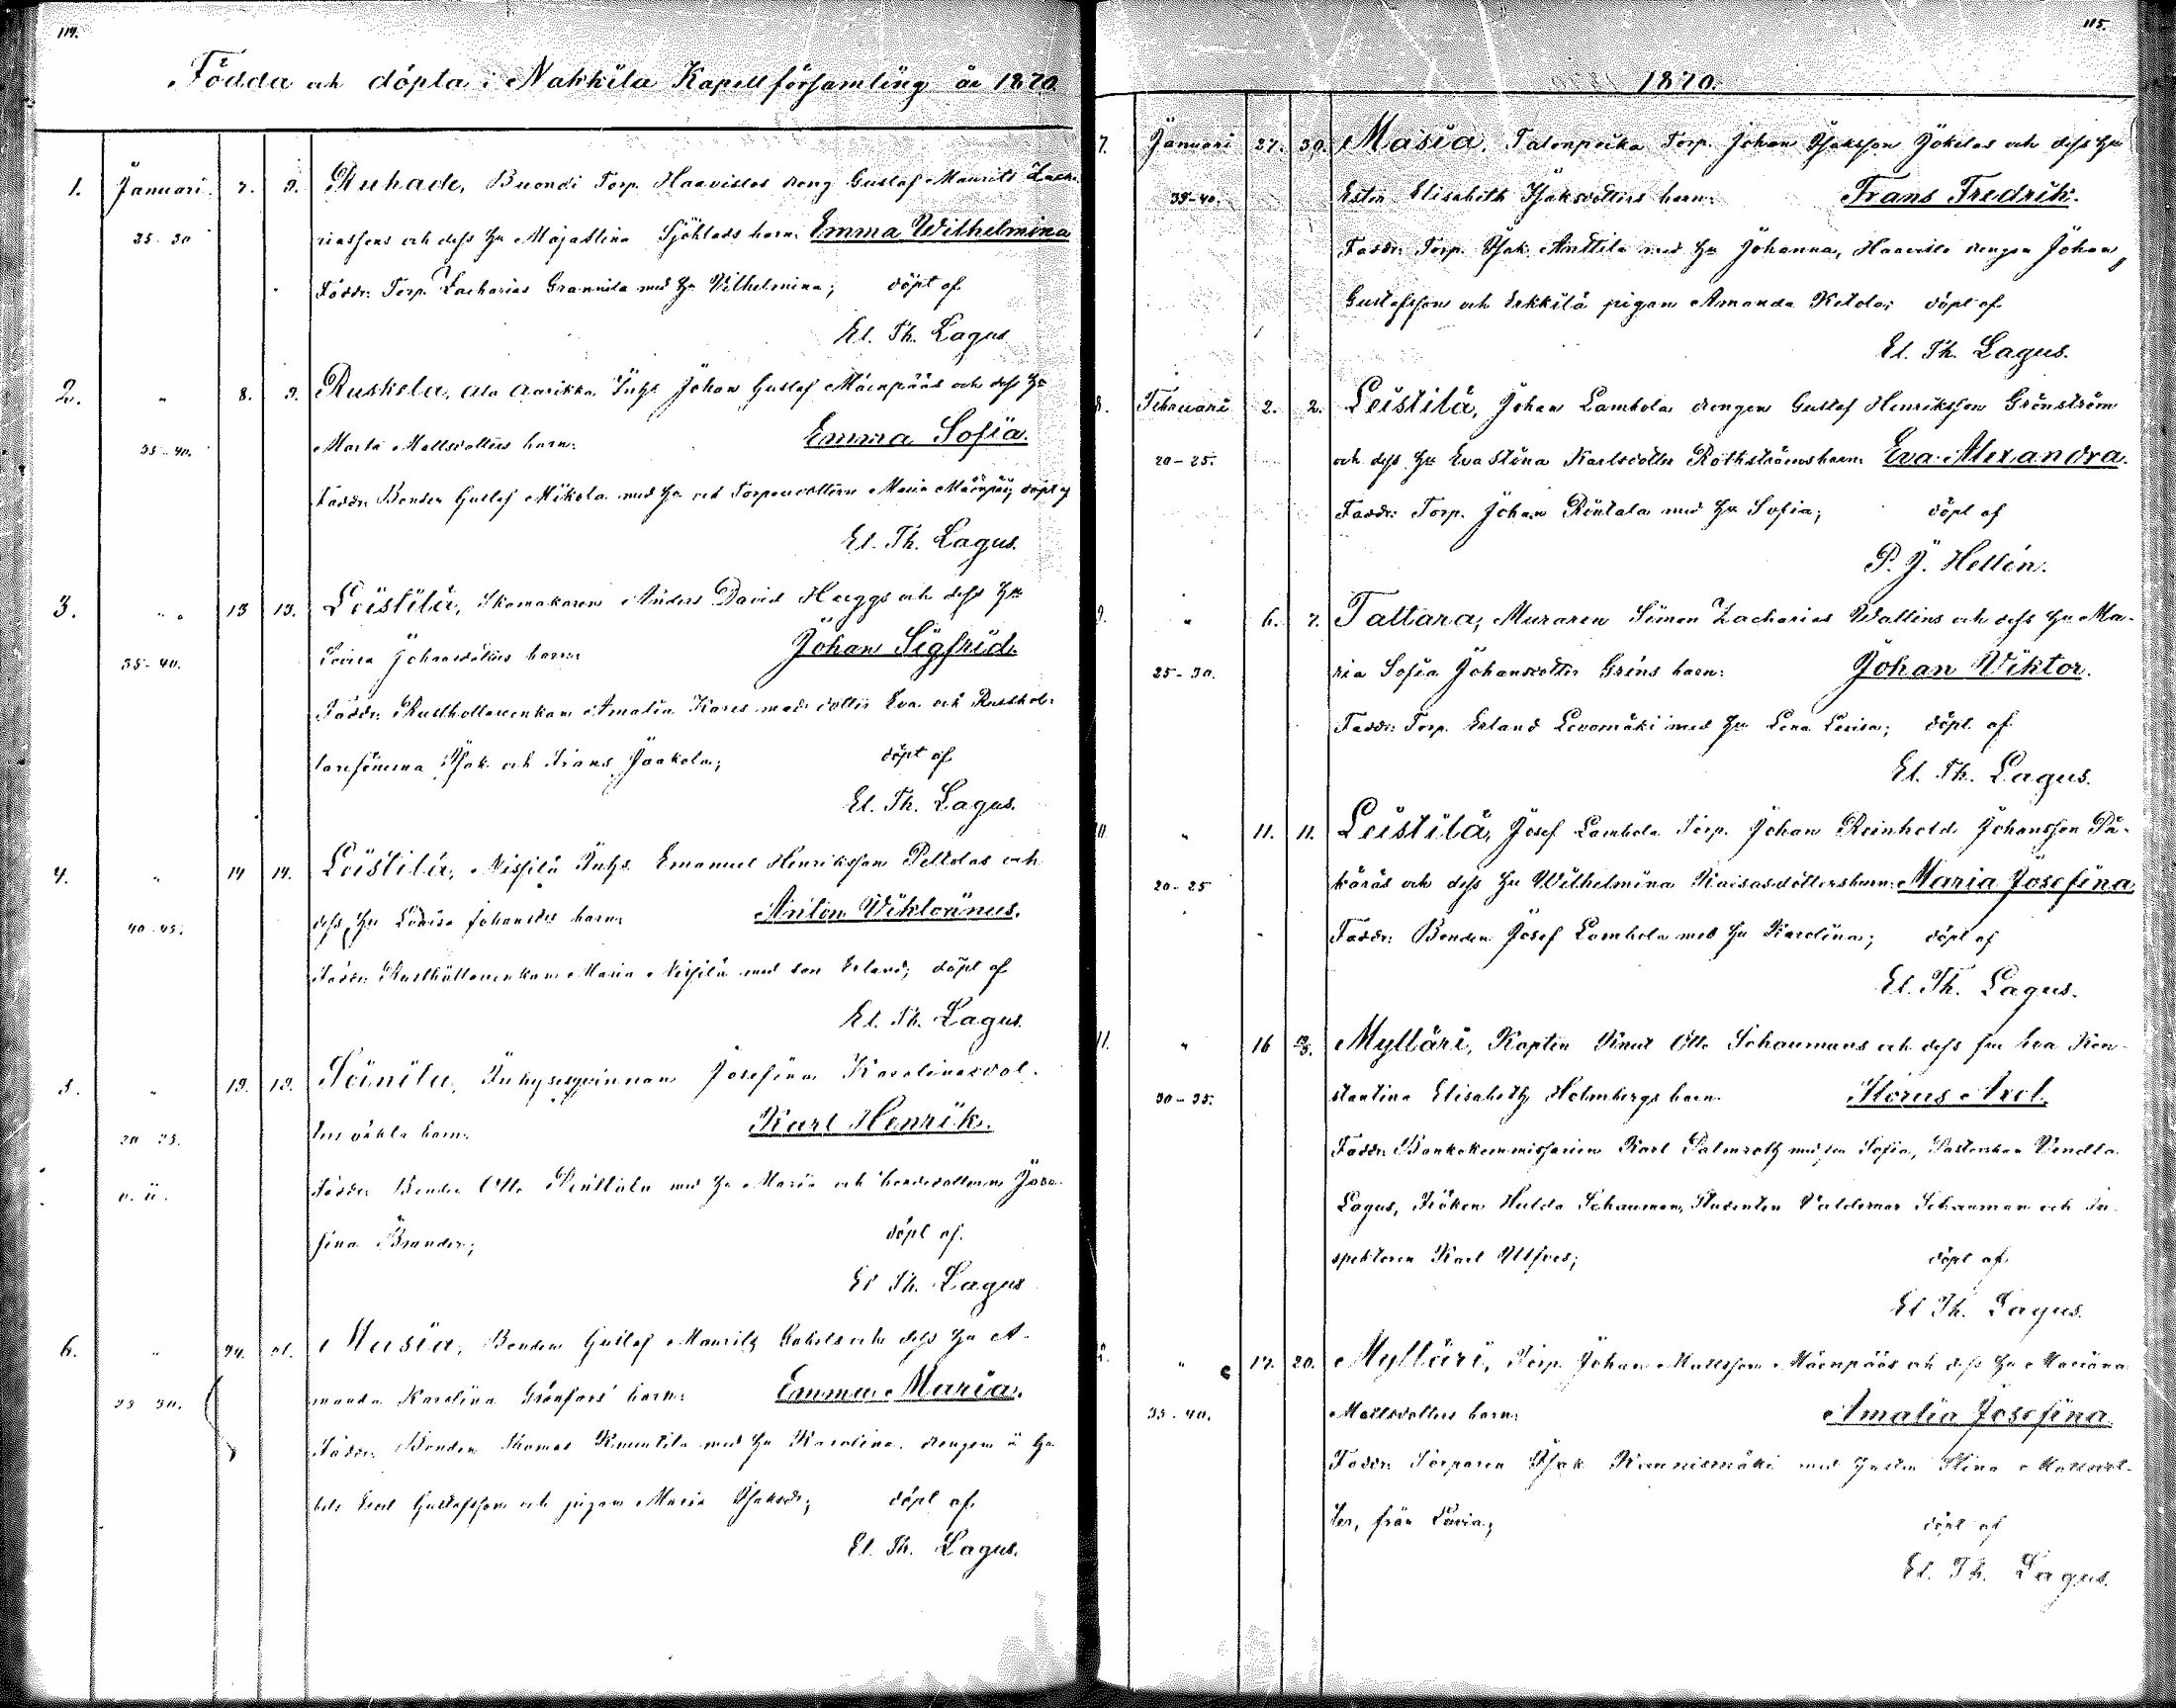 114.
Födda och döpta i Nakkila Kapellförsamling år 1870.
1. Januari 7. 9. Ruhade, Buondi Torp. Haavistos dreng Gustaf Maurits Zacha-
25-30 riassons och dess Hu Majastina Sjöblads barn: Emma Wilhelmina
Faddr: Torp. Zacharias Grannila med Hu Vilhelmina; döpt af
El. Th. Lagus
2. " 8. 9. Ruskela, Ala Aarikka Inhs Johan Gustaf Mäenpääs och dess Hu
35-40. Maria Mattsdotters barn: Emma Sofia.
Faddr: Bonden Gustaf Mikola med Hu och Torparedottern Maria Mäenpää; döpt af
El. Th. Lagus.
3. " 13 13. Leistilä, Skomakaren Anders David Häggs och dess Hu
35-40. Lovisa Johansdotters barn: Johan Sigfrid.
Faddr: Rusthollarenkan Amalia Kares med dotter Eva och Rusthol-
laresönerna Isak och Frans Jaakola; döpt af
El. Th. Lagus.
4. " 14 14. Leistilä, Nissilä Inhs. Emanuel Henriksson Peltolas och
40-45. dess Hu Lovisa Johansdrs barn: Anton Wiktorinus.
Faddr: Rusthållarenkan Maria Nissilä med son Erland; döpt af
El. Th. Lagus.
5. " 19. 19. Soinila, Inhysesqvinnan Josefina Karolinasdot-
20-25. ters oäkta barn: Karl Henrik.
o. ä. Faddr: Bonden Otto Penttala med Hu Maria och bondedottern Jose-
fina Brander; döpt af.
El Th. Lagus
6. " 24. Masia, Bonden Gustaf Mauritz och dess Hu A-
25-30. manda Karolina Grönfors' barn: Emma Maria.
Faddr: Bonden Thomas med Hu Karolina, drengen
Gustafsson och pigan Maria Isaksdr; döpt af
El. Th. Lagus.
115.
1870.
7. Januari 27. 30. Masia, Talonpoika Torp. Johan Isaksson Jokelas och dess Hu
35-40. Ester Elisabeth Isaksdotters barn: Frans Fredrik.
Faddr: Torp. Isak Anttila med Hu Johanna, Haavisto drengen Johan
Gustafsson och Erkkilä pigan Amanda Ketola; döpt af
El. Th. Lagus.
8. Februari 2. 2. Leistilä, Johan Lambola drengen Gustaf Henriksson Grönström
20-25. och dess Hu Eva Stina Karlsdotter Rothströms barn: Eva Alexandra.
Faddr: Torp. Johan Rintala med Hu Sofia; döpt af
P. J. Hellén.
9. " 6. 7. Tattara, Muraren Simon Zacharias Wallins och dess Hu Ma-
25-30. ria Sofia Johansdotter Gréns barn: Johan Wiktor.
Faddr: Torp. Erland Levomäki med Hu Lena Lovisa; döpt af
El. Th. Lagus.
10. " 11. 11. Leistilä, Josef Lambola Torp. Johan Reinhold Johansson Pä-
20-25 käräs och dess Hu Wilhelmina Kaisasdotters barn: Maria Josefina
Faddr: Bonden Josef Lambola med Hu Karolina; döpt af
El. Th. Lagus.
11. " 16 Mylläri, Kapten Knut Otto Schaumans och dess fru Eva Kon-
30-35. stantina Elisabeth Holmbergs barn: Florus Axel.
Faddr: Bankokommissarien Karl Palmroth med fru Sofia, Pastorskan Vendla
Lagus, Fröken Hulda Schauman, Studenten Valdemar Schauman och In-
spektoren Karl Ulfves; döpt af
El Th. Lagus.
12. " 17. 20. Mylläri, Torp. Johan Mattsson Mäenpääs och dess Hu Mariana
35-40. Mattsdotters barn: Amalia Josefina.
Faddr: Torparen Isak Kaunismäki med Hustru Stina Mattsdot-
ter, från Lavia; döpt af
El. Th. Lagus.